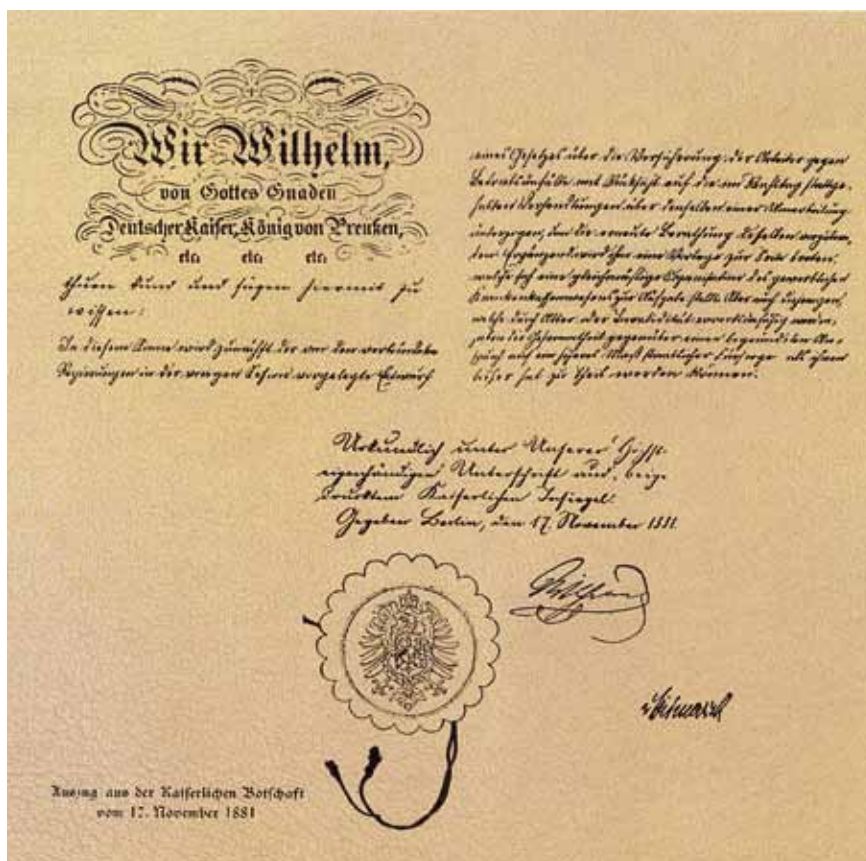 Wir Wilhelm,
von Gottes Gnaden
Deutscher Kaiser, König von Preußen,
etc. etc. etc.
thuen kund und fügen hiermit zu
wissen:
In diesem Sinne wird zunächst der von den verbündeten
Regierungen in der vorigen Session vorgelegte Entwurf
eines Gesetzes über die Versicherung der Arbeiter gegen
Betriebsunfälle mit Rücksicht auf die im Reichstag stattge-
habten Verhandlungen über denselben einer Umarbeitung
unterzogen, um die erneute Berathung desselben vorzuberei-
ten. Ergänzend wird ihm eine Vorlage zur Seite treten,
welche sich eine gleichmäßige Organisation des gewerblichen
Krankenkassenwesens zur Aufgabe stellt. Aber auch diejenigen,
welche durch Alter oder Invalidität erwerbsunfähig werden,
haben der Gesammtheit gegenüber einen begründeten An-
spruch auf ein höheres Maß staatlicher Fürsorge als ihnen
bisher hat zu Theil werden können.
Urkundlich unter Unserer Höchst-
eigenhändigen Unterschrift und beige-
drucktem Kaiserlichen Insiegel.
Gegeben Berlin, den 17. November 1881.
Wilhelm
v Bismarck
Auszug aus der Kaiserlichen Botschaft
vom 17. November 1881